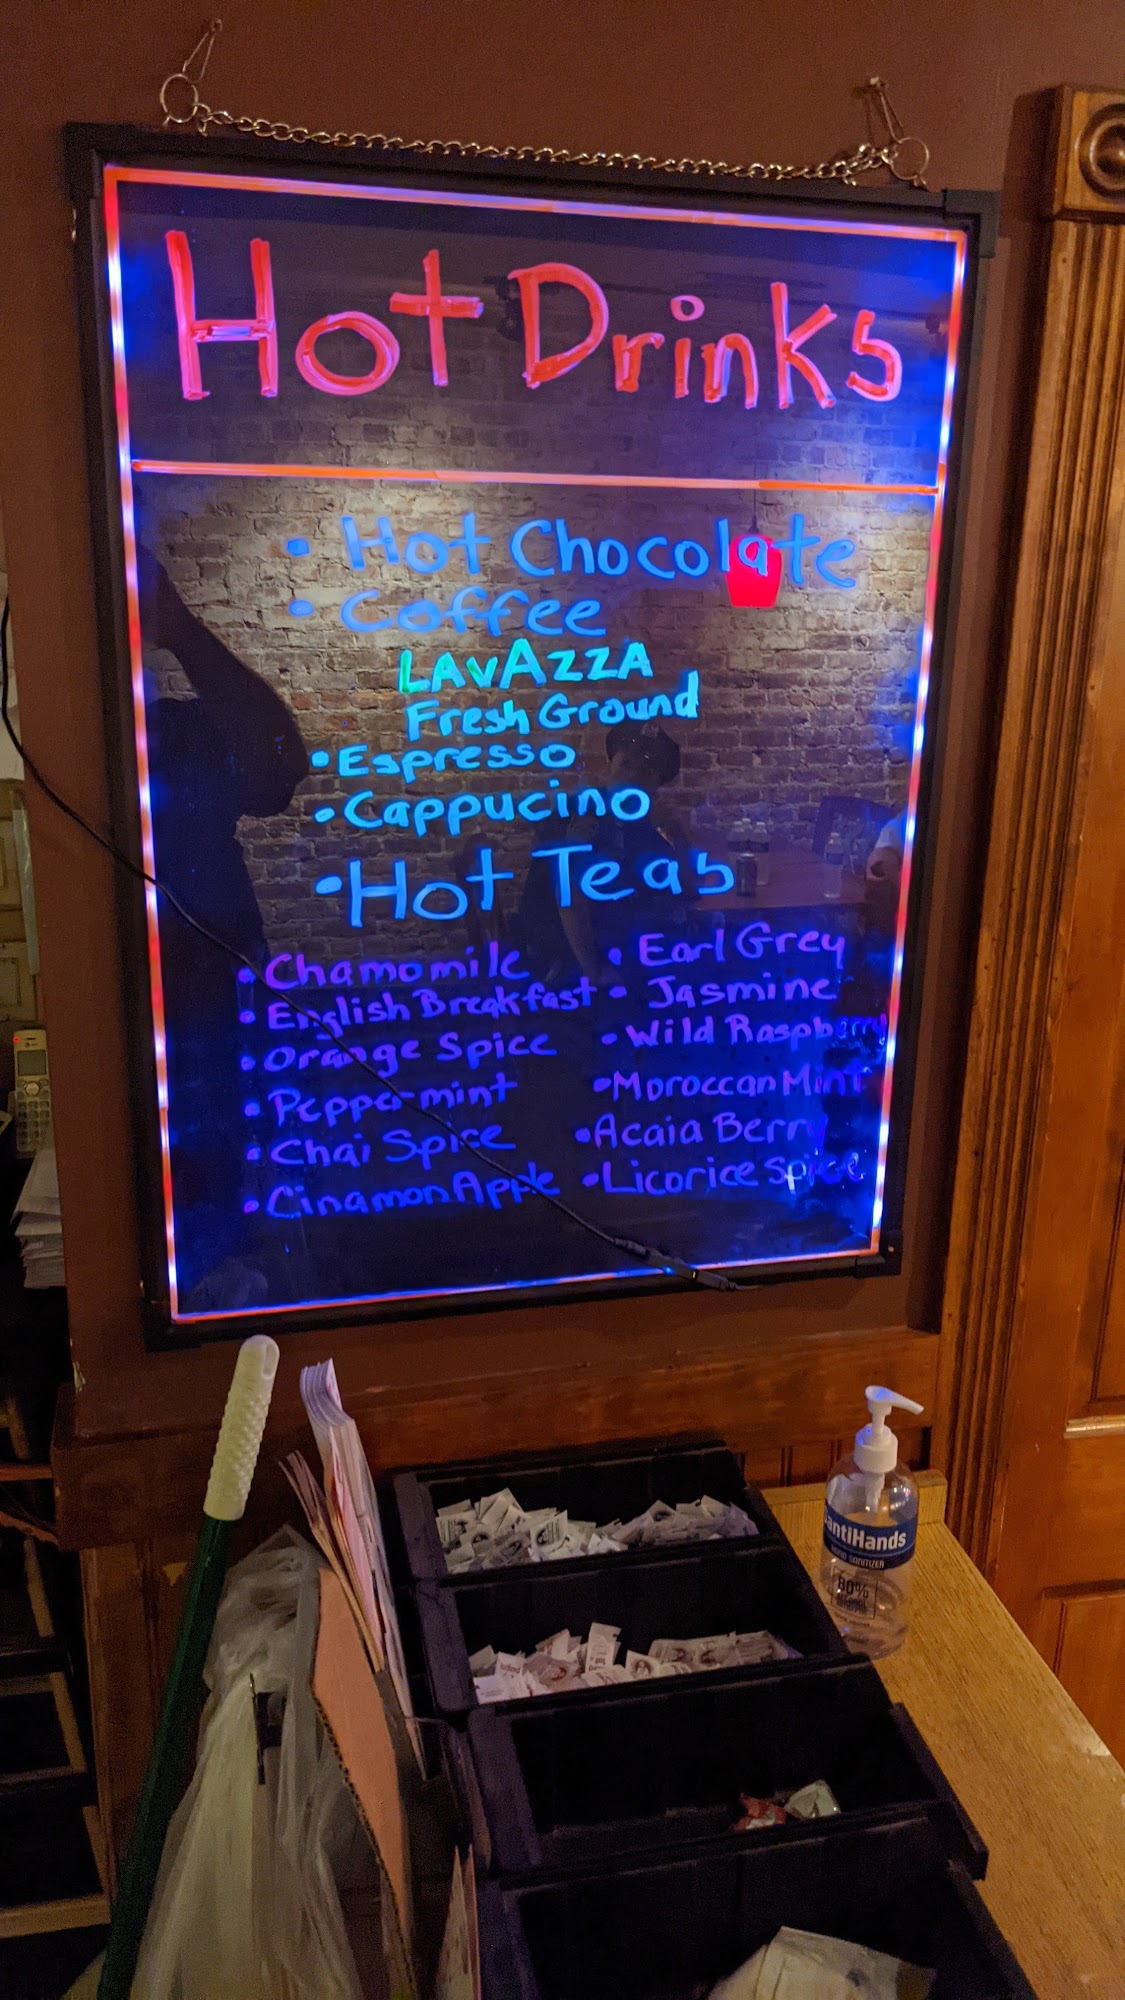 Hot Drinks
• Hot Chocolate
• Coffee
LAVAZZA
Fresh Ground
• Espresso
• Cappucino
• Hot Teas
• Chamomile
• English Breakfast
• Orange Spice
• Pepper-mint
• Chai Spice
• Cinamon Apple
• Earl Grey
• Jasmine
• Wild Raspberry
• Moroccan Mint
• Acaia Berry
• Licorice Spice
SantiHands
HAND SANITIZER
80%